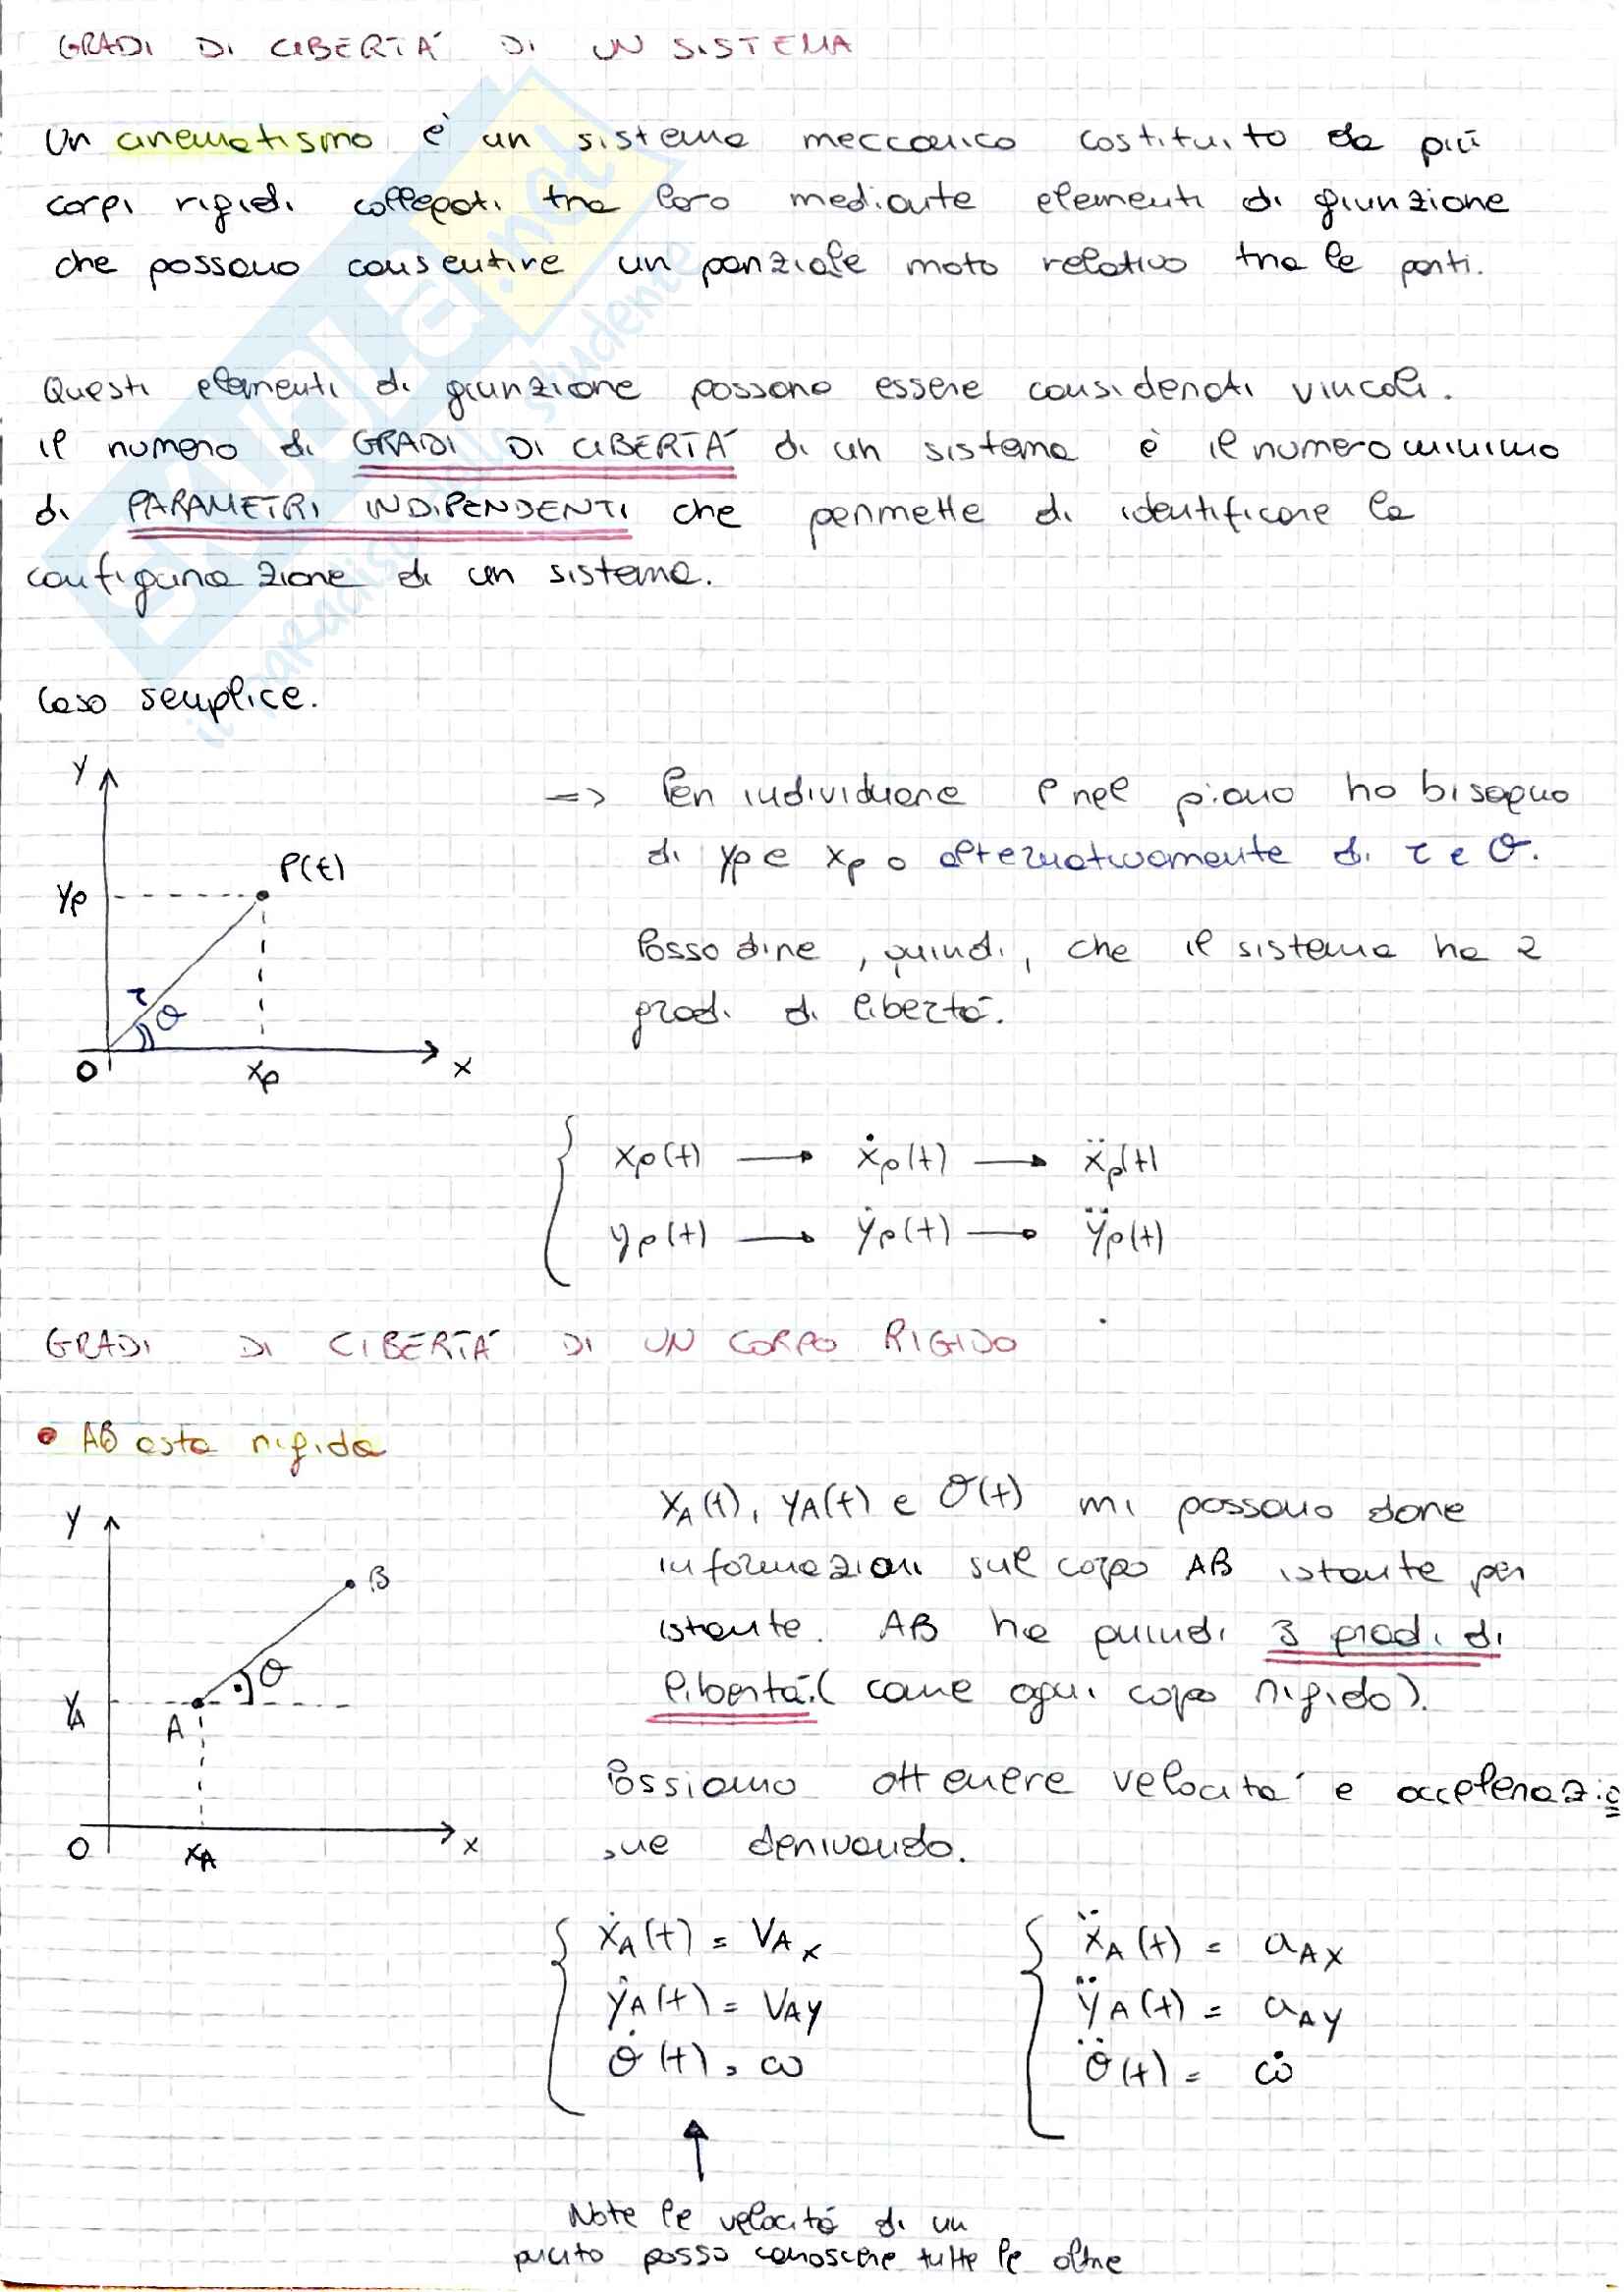 GRADI DI LIBERTÀ DI UN SISTEMA
Un cinematismo è un sistema meccanico costituito da più
corpi rigidi collegati tra loro mediante elementi di giunzione
che possono consentire un parziale moto relativo tra le parti.
Questi elementi di giunzione possono essere considerati vincoli.
Il numero di GRADI DI LIBERTÀ di un sistema è il numero minimo
di PARAMETRI INDIPENDENTI che permette di identificare la
configurazione di un sistema.
Caso semplice.
y
P(t)
yp
r
θ
O
xp
x
=> Per individuare P nel piano ho bisogno
di yp e xp o alternativamente di r e θ.
Posso dire, quindi, che il sistema ha 2
gradi di libertà.
xp(t) → ẋp(t) → ẍp(t)
yp(t) → ẏp(t) → ÿp(t)
GRADI DI LIBERTÀ DI UN CORPO RIGIDO
• AB asta rigida
y
B
θ
yA
A
O
xA
x
xA(t), yA(t) e θ(t) mi possono dare
informazioni sul corpo AB istante per
istante. AB ha quindi 3 gradi di
libertà (come ogni corpo rigido).
Possiamo ottenere velocità e accelerazio
ne derivando.
ẋA(t) = VAx ẍA(t) = aAx
ẏA(t) = VAy ÿA(t) = aAy
θ̇(t) = ω θ̈(t) = ω̇
↑
Note le velocità di un
punto posso conoscere tutte le altre
skuola.net
il paradiso dello studente